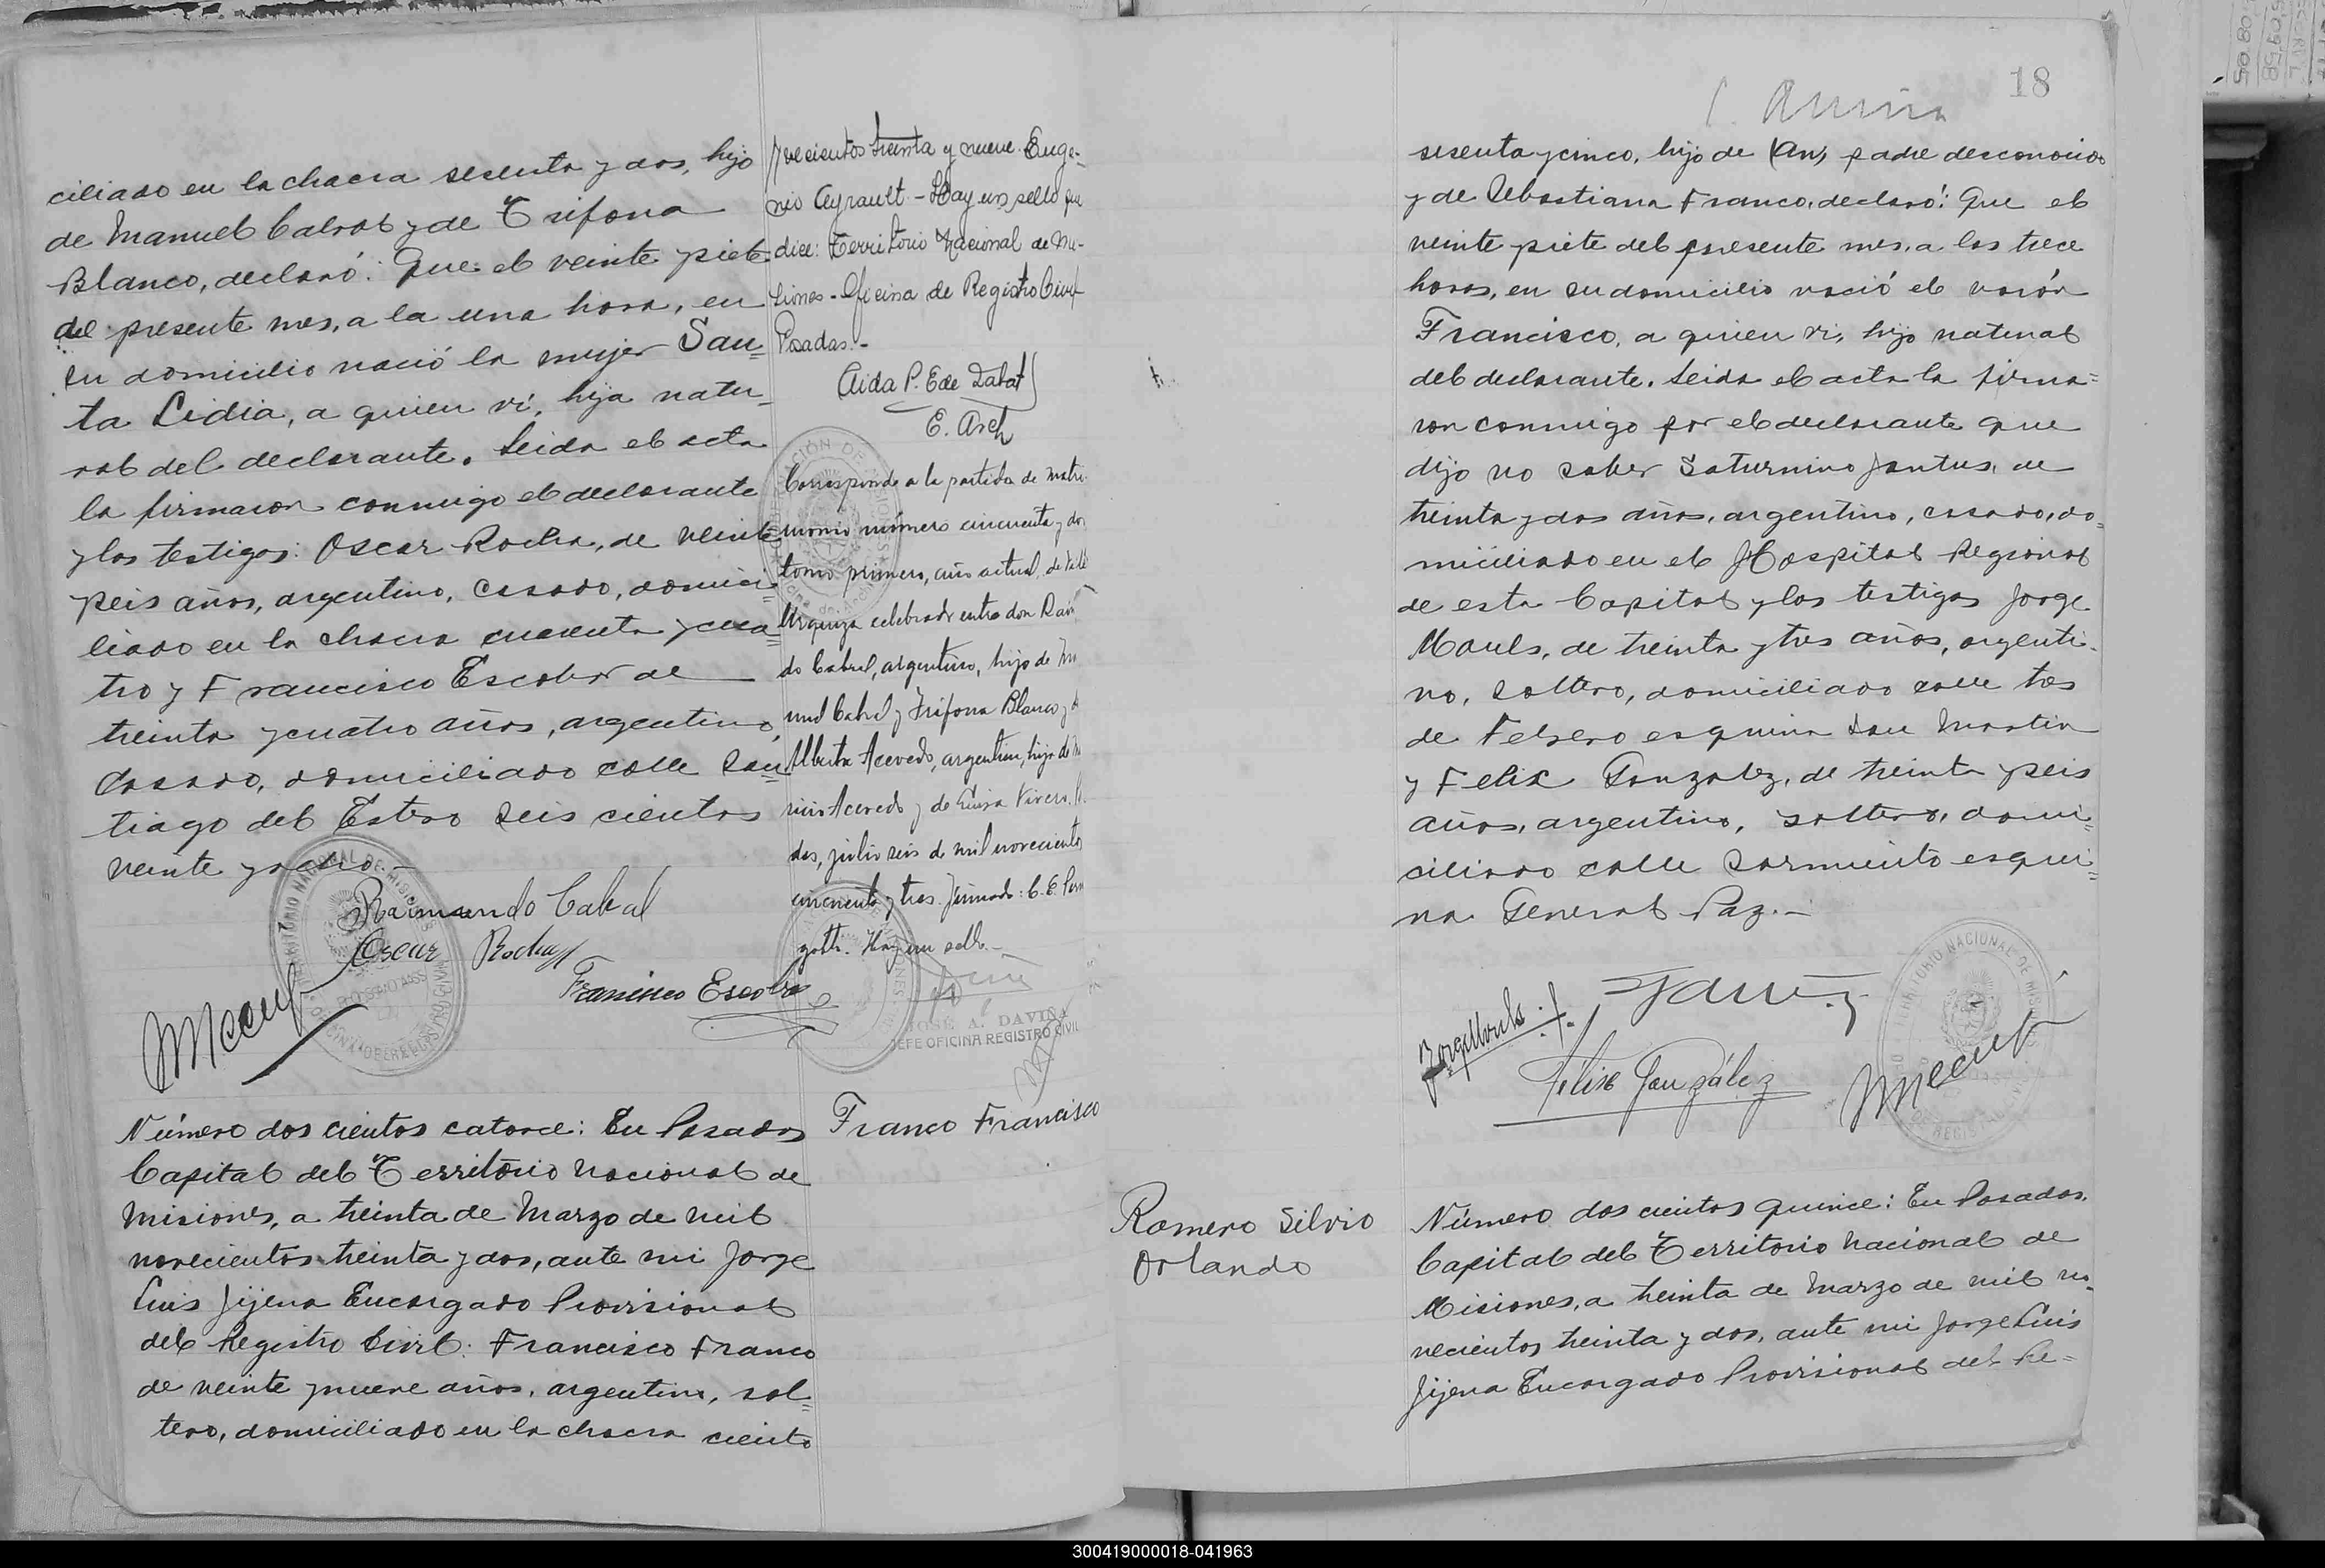 ciliado en la chacra sesenta y dos, hijo
de Manuel Cabral y de Trifona
Blanco, declaró: Que el veinte y siete
del presente mes, a la una hora, en
su domicilio nació la mujer San=
ta Lidia, a quien vi, hija natu=
ral del declarante. Leida el acta
la firmaron conmigo el declarante
y los testigos: Oscar Rocha, de veinte
y seis años, argentino, casado, domici=
liado en la chacra cuarenta y cua=
tro y Francisco Escobar de
treinta y cuatro años, argentino,
casado, domiciliado calle San=
tiago del Estero seis cientos
veinte y ocho.—
Raimundo Cabral
Oscar Rocha
Francisco Escobar
novecientos treinta y nueve. Euge-
nio Ayrault - Hay un sello que
dice: Territorio Nacional de Mi-
siones - Oficina de Registro Civil
Posadas.-
Aida P. E de Zabat
E. Arch
Corresponde a la partida de matri-
monio número cincuenta y dos
tomo primero, año actual, de Villa
Urquiza celebrado entre don Rai
do Cabral, argentino, hijo de Ma
nuel Cabral y Trifona Blanco y d
Alberta Acevedo, argentina, hija de
Acevedo y de
das, julio seis de mil novecientos
cincuenta y tres. Firmado: C. E.
Hay un sello.—
JOSÉ A. DAVIÑA
JEFE OFICINA REGISTRO CIVIL
Número dos cientos catorce: En Posadas
Capital del Territorio Nacional de
Misiones, a treinta de Marzo de mil
novecientos treinta y dos, ante mi Jorge
Luis Jijena Encargado Provisional
del Registro Civil: Francisco Franco
de veinte y nueve años, argentino, sol=
tero, domiciliado en la chacra ciento
Franco Francisco
18
sesenta y cinco, hijo de padre desconocido
y de Sebastiana Franco, declaró: Que el
veinte y siete del presente mes, a las trece
horas, en su domicilio nació el varón
Francisco, a quien vi, hijo natural
del declarante. Leida el acta la firma=
ron conmigo por el declarante que
dijo no saber Saturnino Jantus, de
treinta y dos años, argentino, casado, do=
miciliado en el Hospital Regional
de esta Capital y los testigos Jorge
Mouls, de treinta y tres años, argenti-
no, soltero, domiciliado calle tres
de Febrero esquina San Martin
y Felix Gonzalez, de treinta y seis
años, argentino, soltero, domi=
ciliado calle Sarmiento esqui=
na General Paz.—
Jorge Mouls
Felix González
Romero Silvio
Orlando
Número dos cientos quince: En Posadas,
Capital del Territorio Nacional de
Misiones, a treinta de Marzo de mil no=
vecientos treinta y dos, ante mi Jorge Luis
Jijena Encargado Provisional del Re=
300419000018-041963